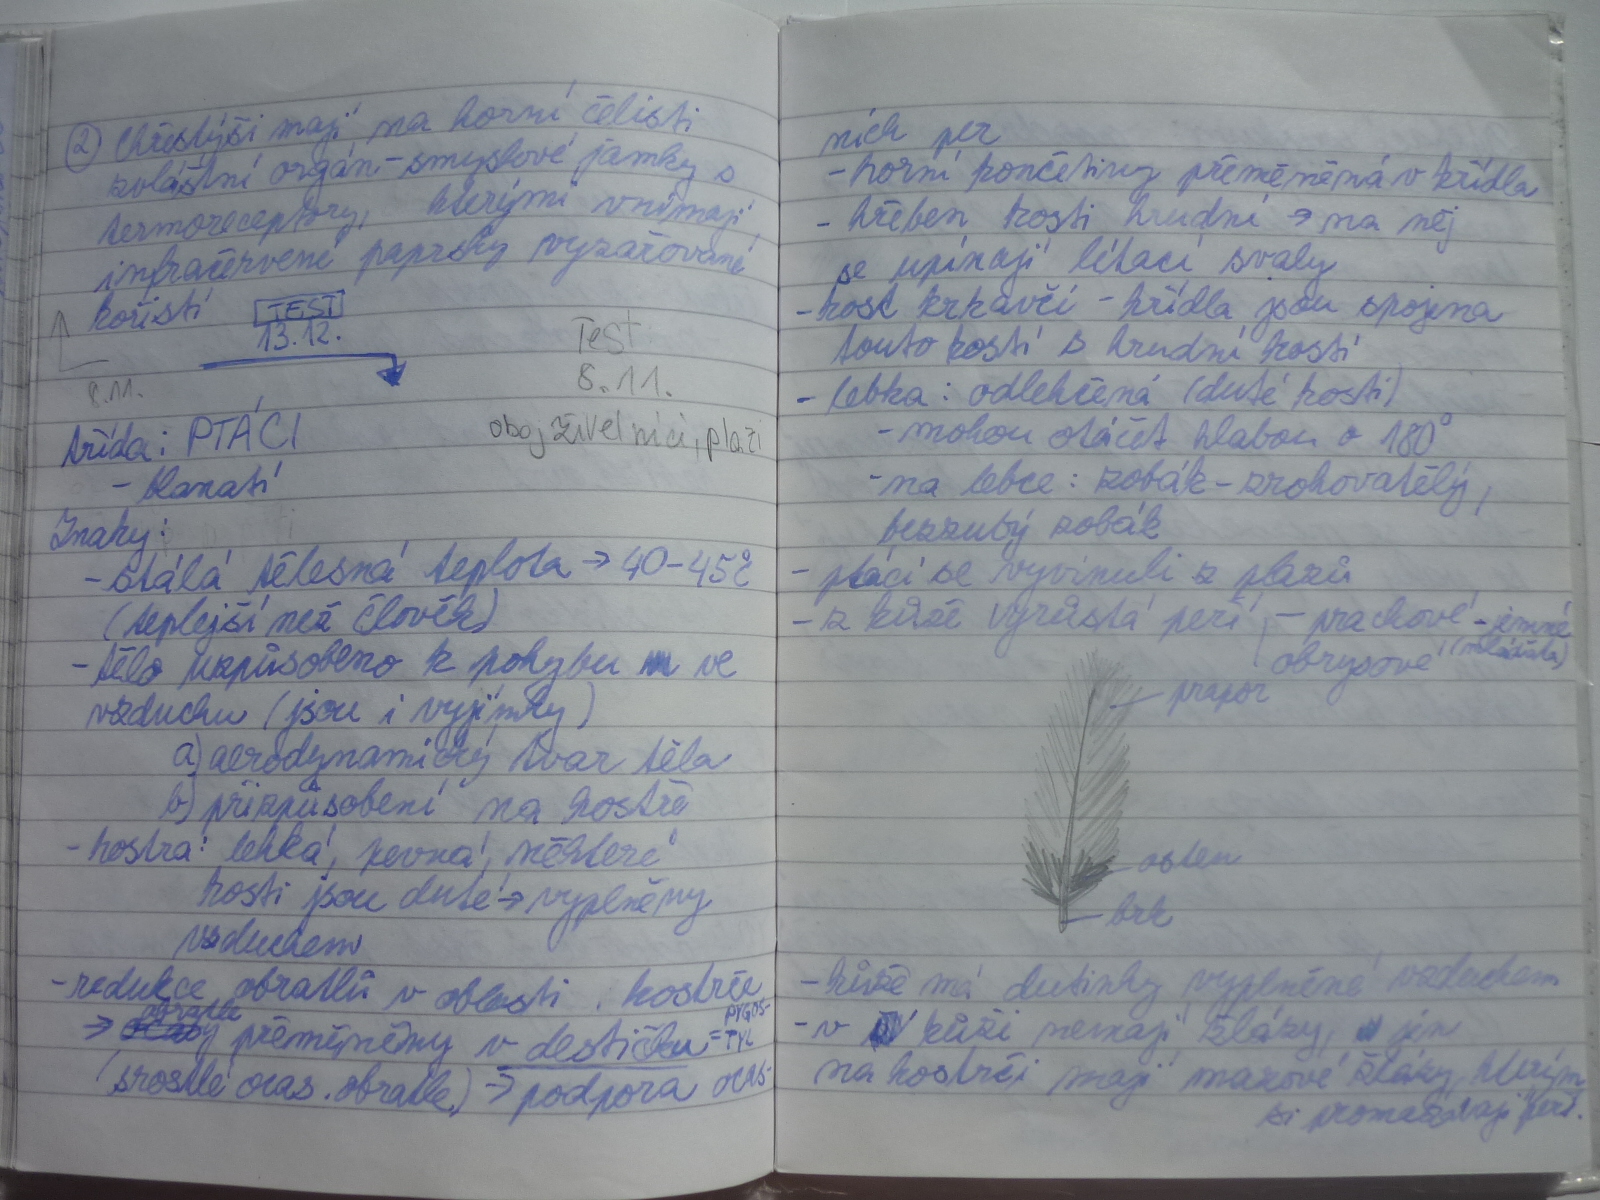 ② Chřestýši mají na horní čelisti
zvláštní orgán - smyslové jamky s
termoreceptory, kterými vnímají
infračervené paprsky vyzařované
kořistí
TEST
13.12.
8.11.
Test
8.11.
obojživelníci, plazi
třída: PTÁCI
- blanatí
Znaky:
- stálá tělesná teplota → 40-45°C
(teplejší než člověk)
- tělo uzpůsobeno k pohybu ve
vzduchu (jsou i vyjímky)
a) aerodynamický tvar těla
b) přizpůsobení na kostře
- kostra: lehká, pevná, některé
kosti jsou duté → vyplněny
vzduchem
- redukce obratlů v oblasti kostrče
→ obratle přeměněny v destičku = PYGOS-
TYL
(srostlé ocas. obratle) → podpora ocas-
ních per
- horní končetiny přeměněná v křídla
- hřeben kosti hrudní → na něj
se upínají létací svaly
- kost krkavčí - křídla jsou spojena
touto kostí s hrudní kostí
- lebka: odlehčená (duté kosti)
- mohou otáčet hlavou o 180°
- na lebce: zobák - zrohovatělý,
bezzubý zobák
- ptáci se vyvinuli z plazů
- z kůže vyrůstá peří - prachové - jemné
obrysové (mláďata)
prapor
osten
brk
- kůže má dutinky vyplněné vzduchem
- v kůži nemají žlázy, jen
na kostrči mají mazové žlázy, kterým
si promazávají peří.